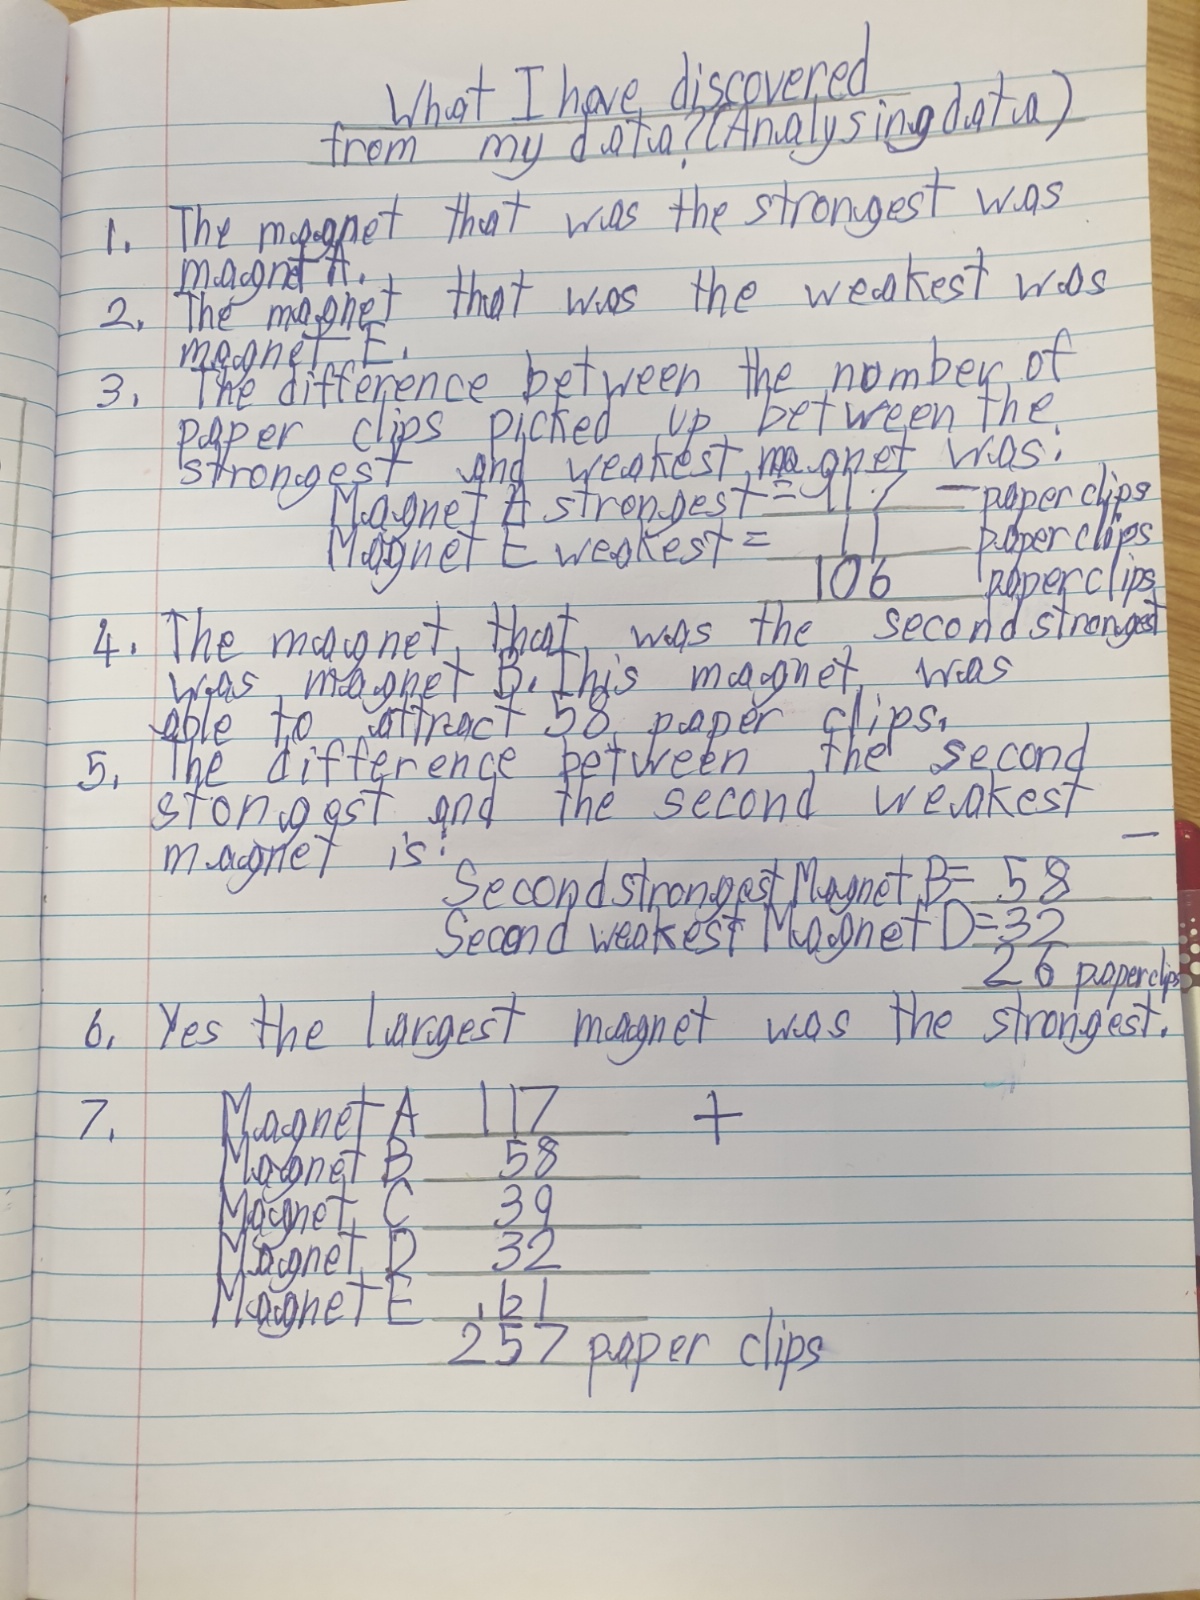 What I have discovered
from my data? (Analysing data)
1. The magnet that was the strongest was
magnet A.
2. The magnet that was the weakest was
magnet E.
3. The difference between the number of
paper clips picked up between the
strongest and weakest magnet was:
Magnet A strongest = 117 - paper clips
Magnet E weakest = 11 paper clips
106 paper clips
4. The magnet that was the second strongest
was magnet B. This magnet was
able to attract 58 paper clips.
5. The difference between the second
stongest and the second weakest
magnet is: -
Second strongest Magnet B = 58
Second weakest Magnet D = 32
26 paper clips
6. Yes the largest magnet was the strongest.
7. Magnet A 117 +
Magnet B 58
Magnet C 39
Magnet D 32
Magnet E
257 paper clips